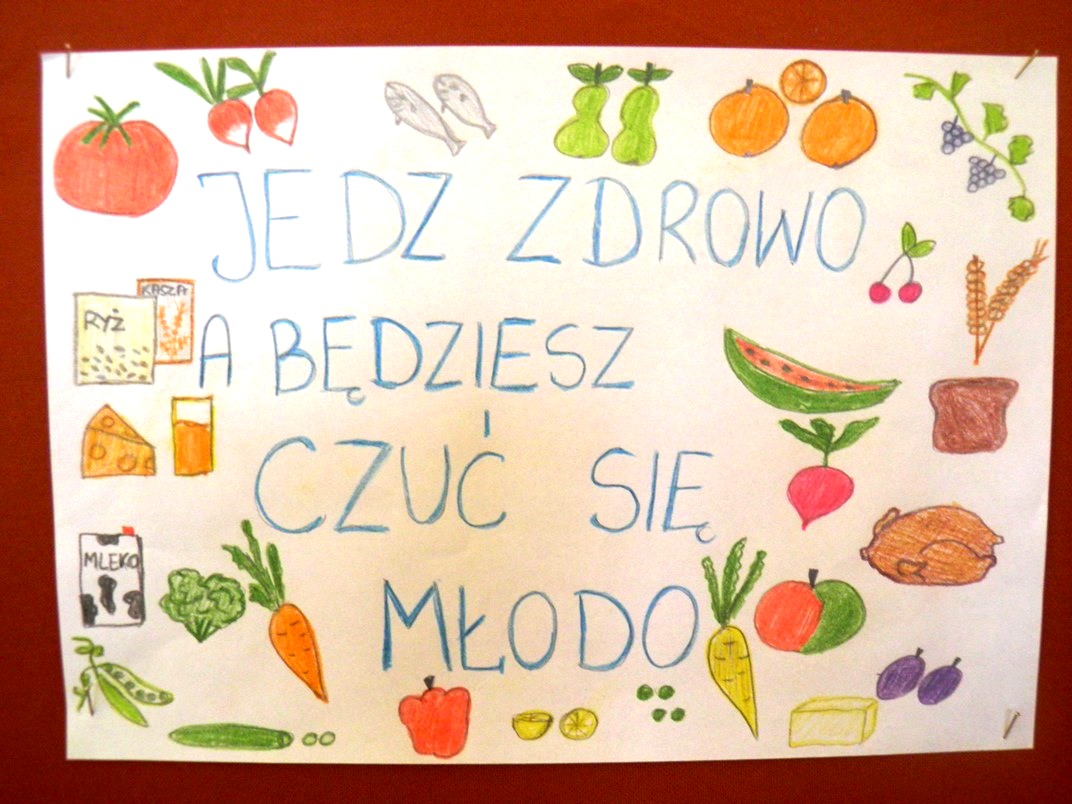 JEDZ ZDROWO
KASZA
RYŻ
A BĘDZIESZ
CZUĆ SIĘ
MLEKO
MŁODO